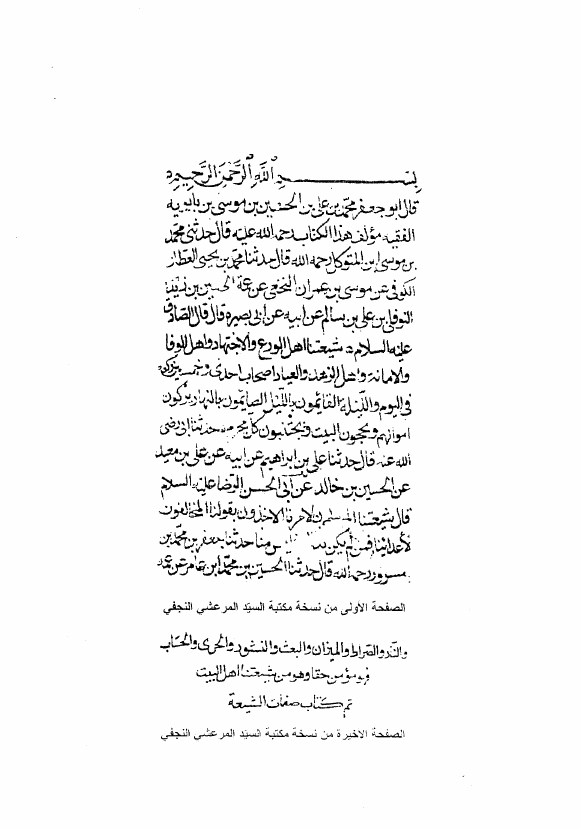 بسم الله الرحمن الرحيم
قال ابو جعفر محمد بن على بن الحسين بن موسى بن بابويه
الفقيه مؤلف هذا الكتاب رحمه الله عليه قال حدثنى محمد
بن موسى ابن المتوكل رحمه الله قال حدثنا محمد بن يحيى العطار
الكوفى عن موسى بن عمران النخعى عن عمه الحسين بن يزيد
النوفلى بن على بن سالم عن ابيه عن ابى بصير قال قال الصادق
عليه السلام شيعتنا اهل الورع والاجتهاد واهل الوفا
والامانة واهل الزهد والعباد اصحاب احدى وخمسين ركعة
فى اليوم والليلة القائمون بالليل الصايمون بالنهار يزكون
اموالهم ويحجون البيت ويجتنبون كل محرم حدثنا ابى رضى
الله عنه قال حدثنا على بن ابراهيم عن ابيه عن على بن معبد
عن الحسين بن خالد عن أبى الحسن الرضا عليه السلام
قال شيعتنا المسلمون لامرنا الاخذون بقولنا المخالفون
لأعدائنا فمن لم يكن منا حدثنا جعفر بن محمد بن
مسرور رحمه الله قال حدثنا الحسين بن محمد ابن عامر عن عمه
الصفحة الأولى من نسخة مكتبة السيّد المرعشي النجفي
والصراط والميزان والبعث والنشور والحساب
فهو مؤمن حقا وهو من شيعتنا اهل البيت
تم كتاب صفات الشيعة
الصفحة الاخيرة من نسخة مكتبة السيّد المرعشي النجفي